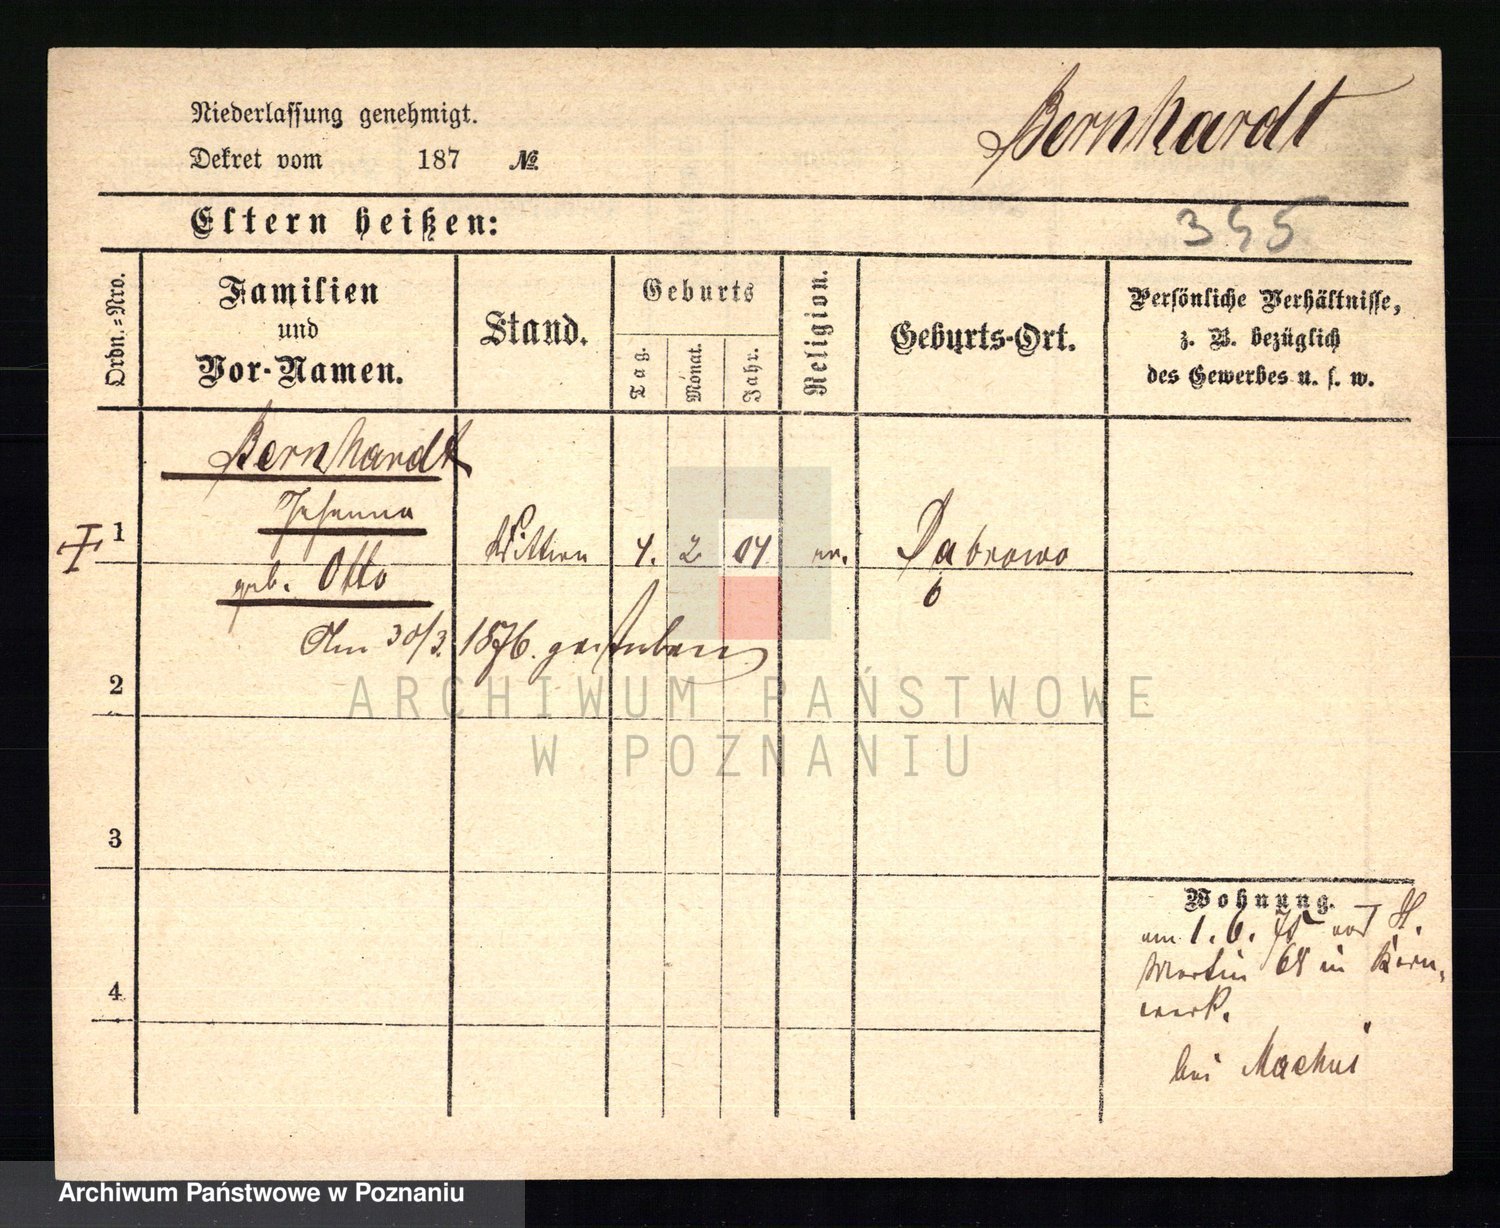 Niederlassung genehmigt.
Dekret vom 187 №
Bernhardt
Eltern heißen:
355
Ordn.-Nro.
Familien
und
Vor-Namen.
Stand.
Geburts
Tag.
Monat.
Jahr.
Religion.
Geburts-Ort.
Persönliche Verhältnisse,
z. B. bezüglich
des Gewerbes u. s. w.
Bernhardt
Johanna
1
geb. Otto
Wittwe 4. 2 04 ev. Dabrowo
6
Am 30/3. 1876. gestorben
2
ARCHIWUM PAŃSTWOWE
W POZNANIU
3
Wohnung.
am 1. 6. 75 St.
Martin 68 in Kern-
werk.
bei
4
Archiwum Państwowe w Poznaniu